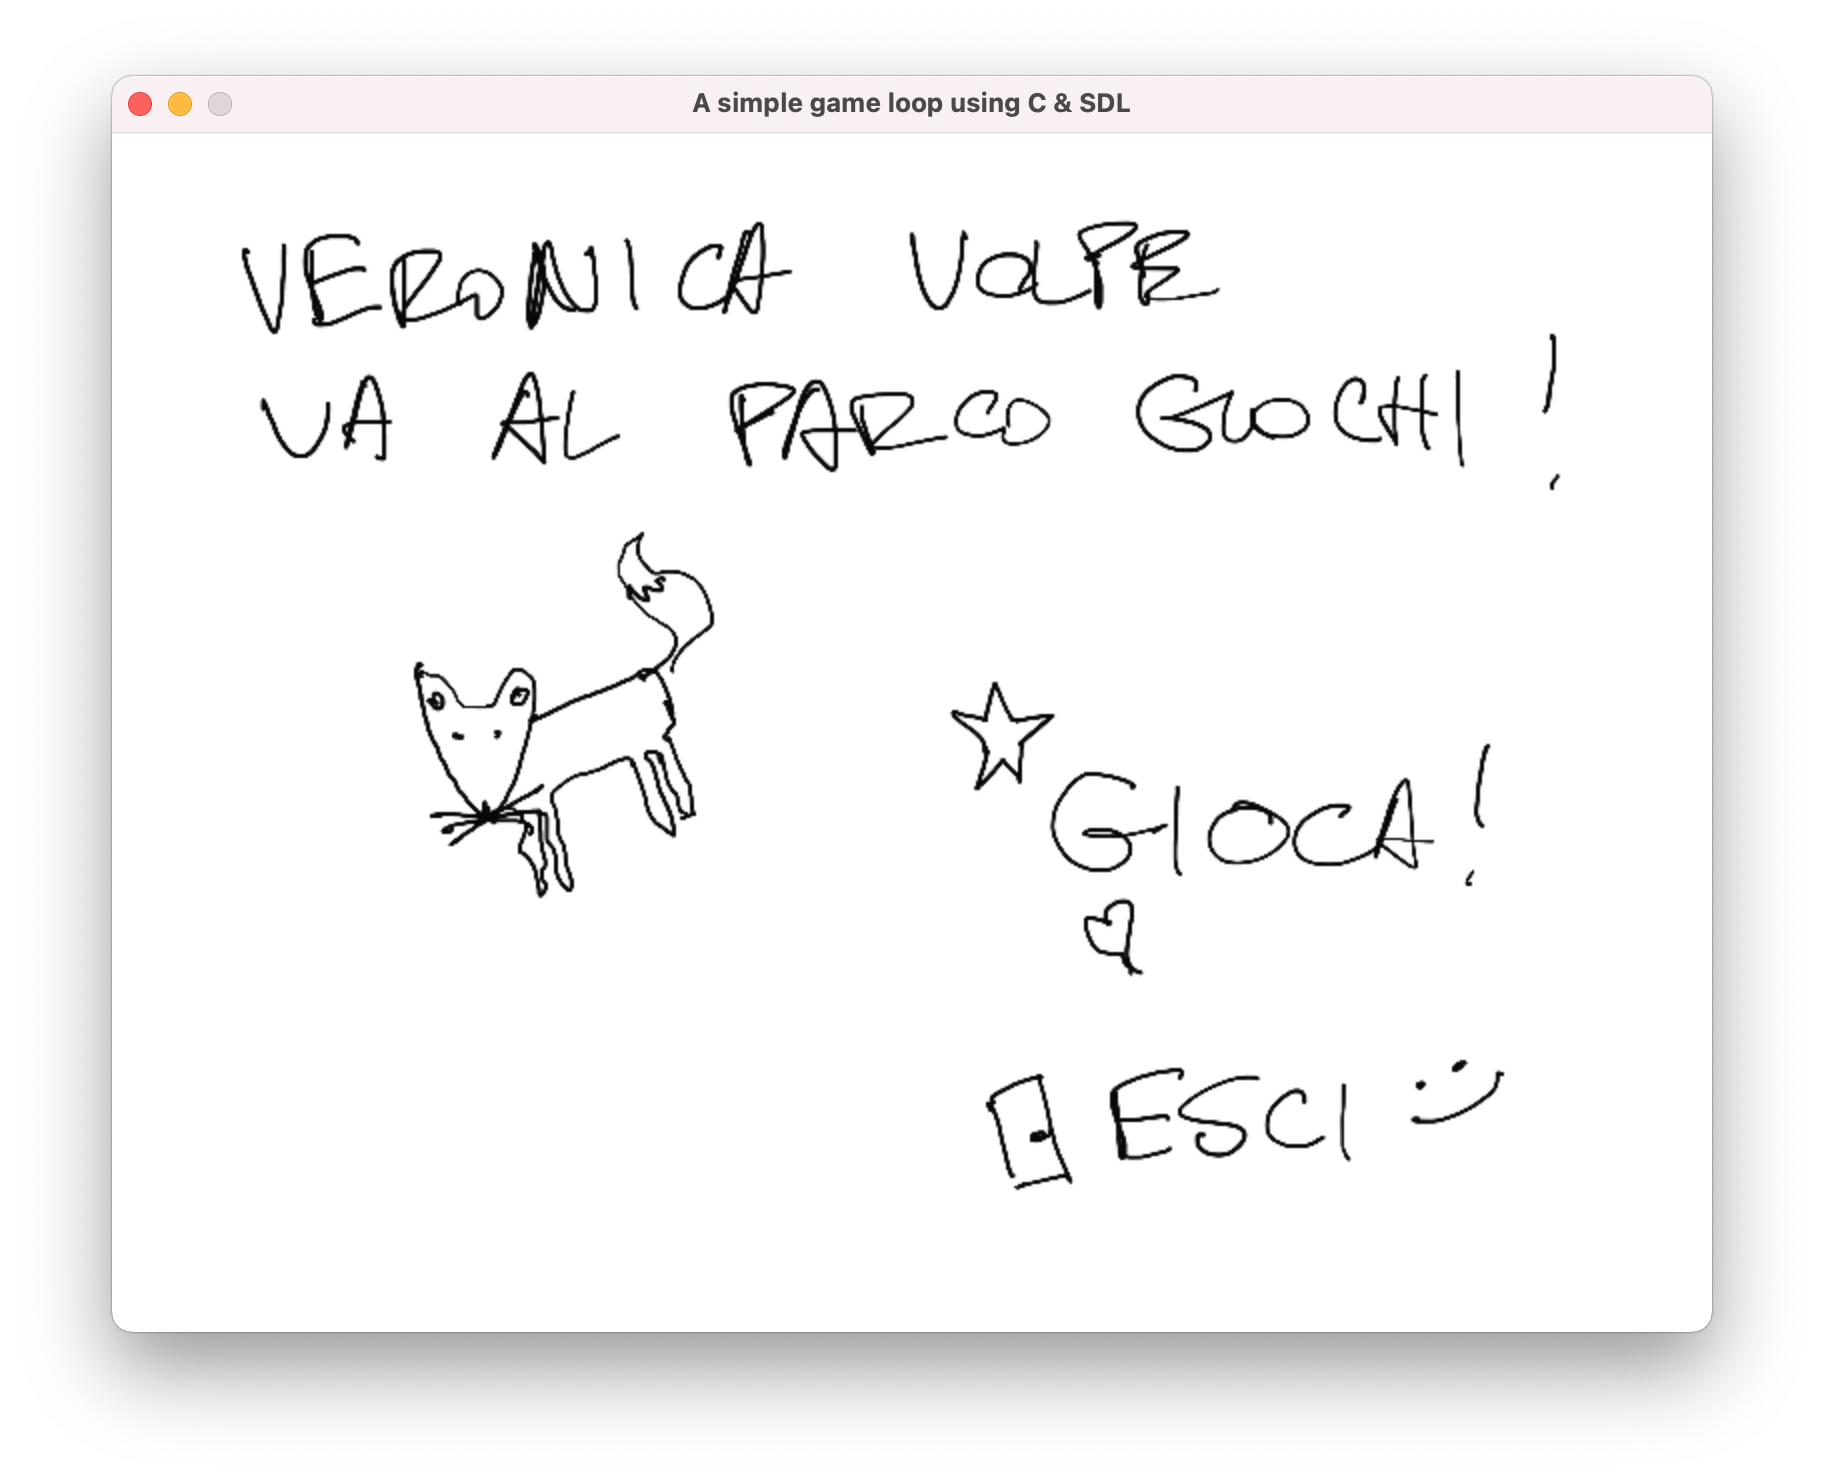 A simple game loop using C & SDL
VERONICA VOLPE
VA AL PARCO GIOCHI!
GIOCA!
ESCI :)